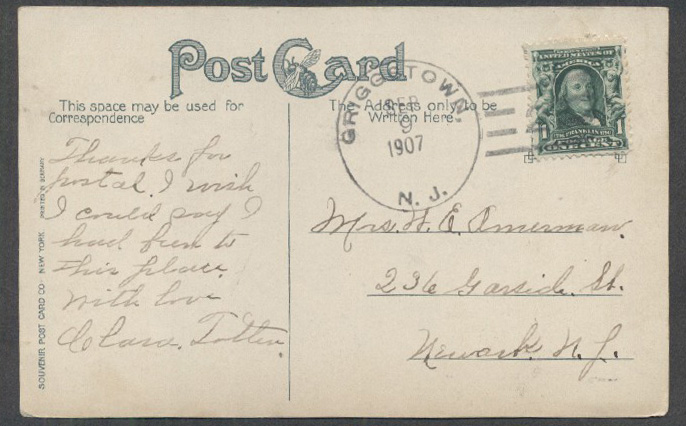 Post Card
This space may be used for
Correspondence
The Address only to be
Written Here
GRIGGSTOWN,
SEP
9
1907
N. J.
UNITED STATES OF
AMERICA
FRANKLIN
1 1
POSTAGE
ONE CENT
Thanks for
postal. I wish
I could say I
had been to
this place.
With love
Clara. Totten.
Mrs. W. E. Amerman.
236 Garside. St.
Newark. N. J.
SOUVENIR POST CARD CO. NEW YORK. PRINTED IN GERMANY